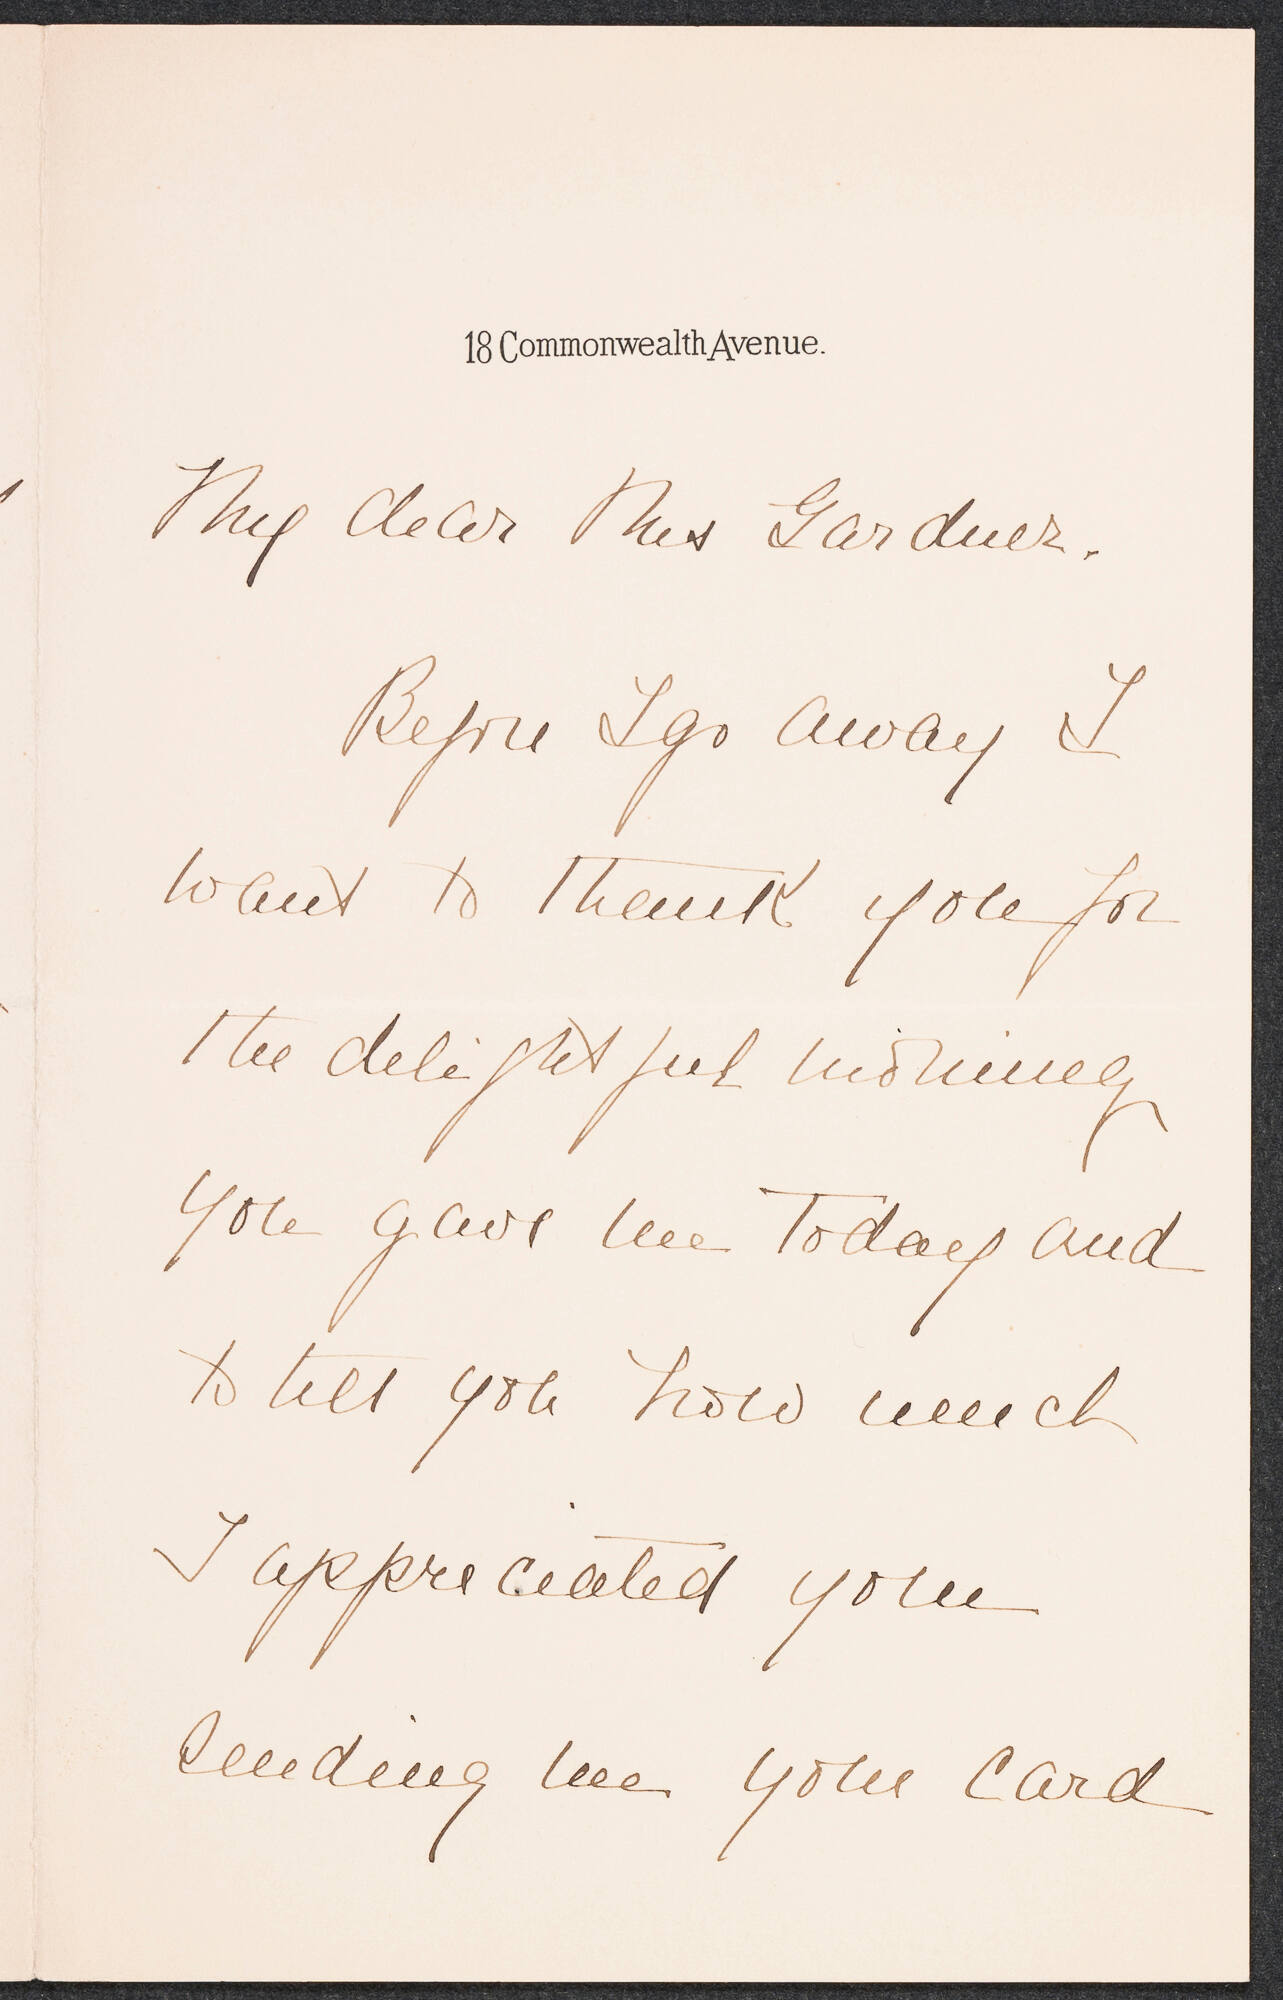 18 Commonwealth Avenue.
My dear Mrs Gardner.
Before I go away I
want to thank you for
the delightful morning
you gave me today and
to tell you how much
I appreciated your
sending me your card